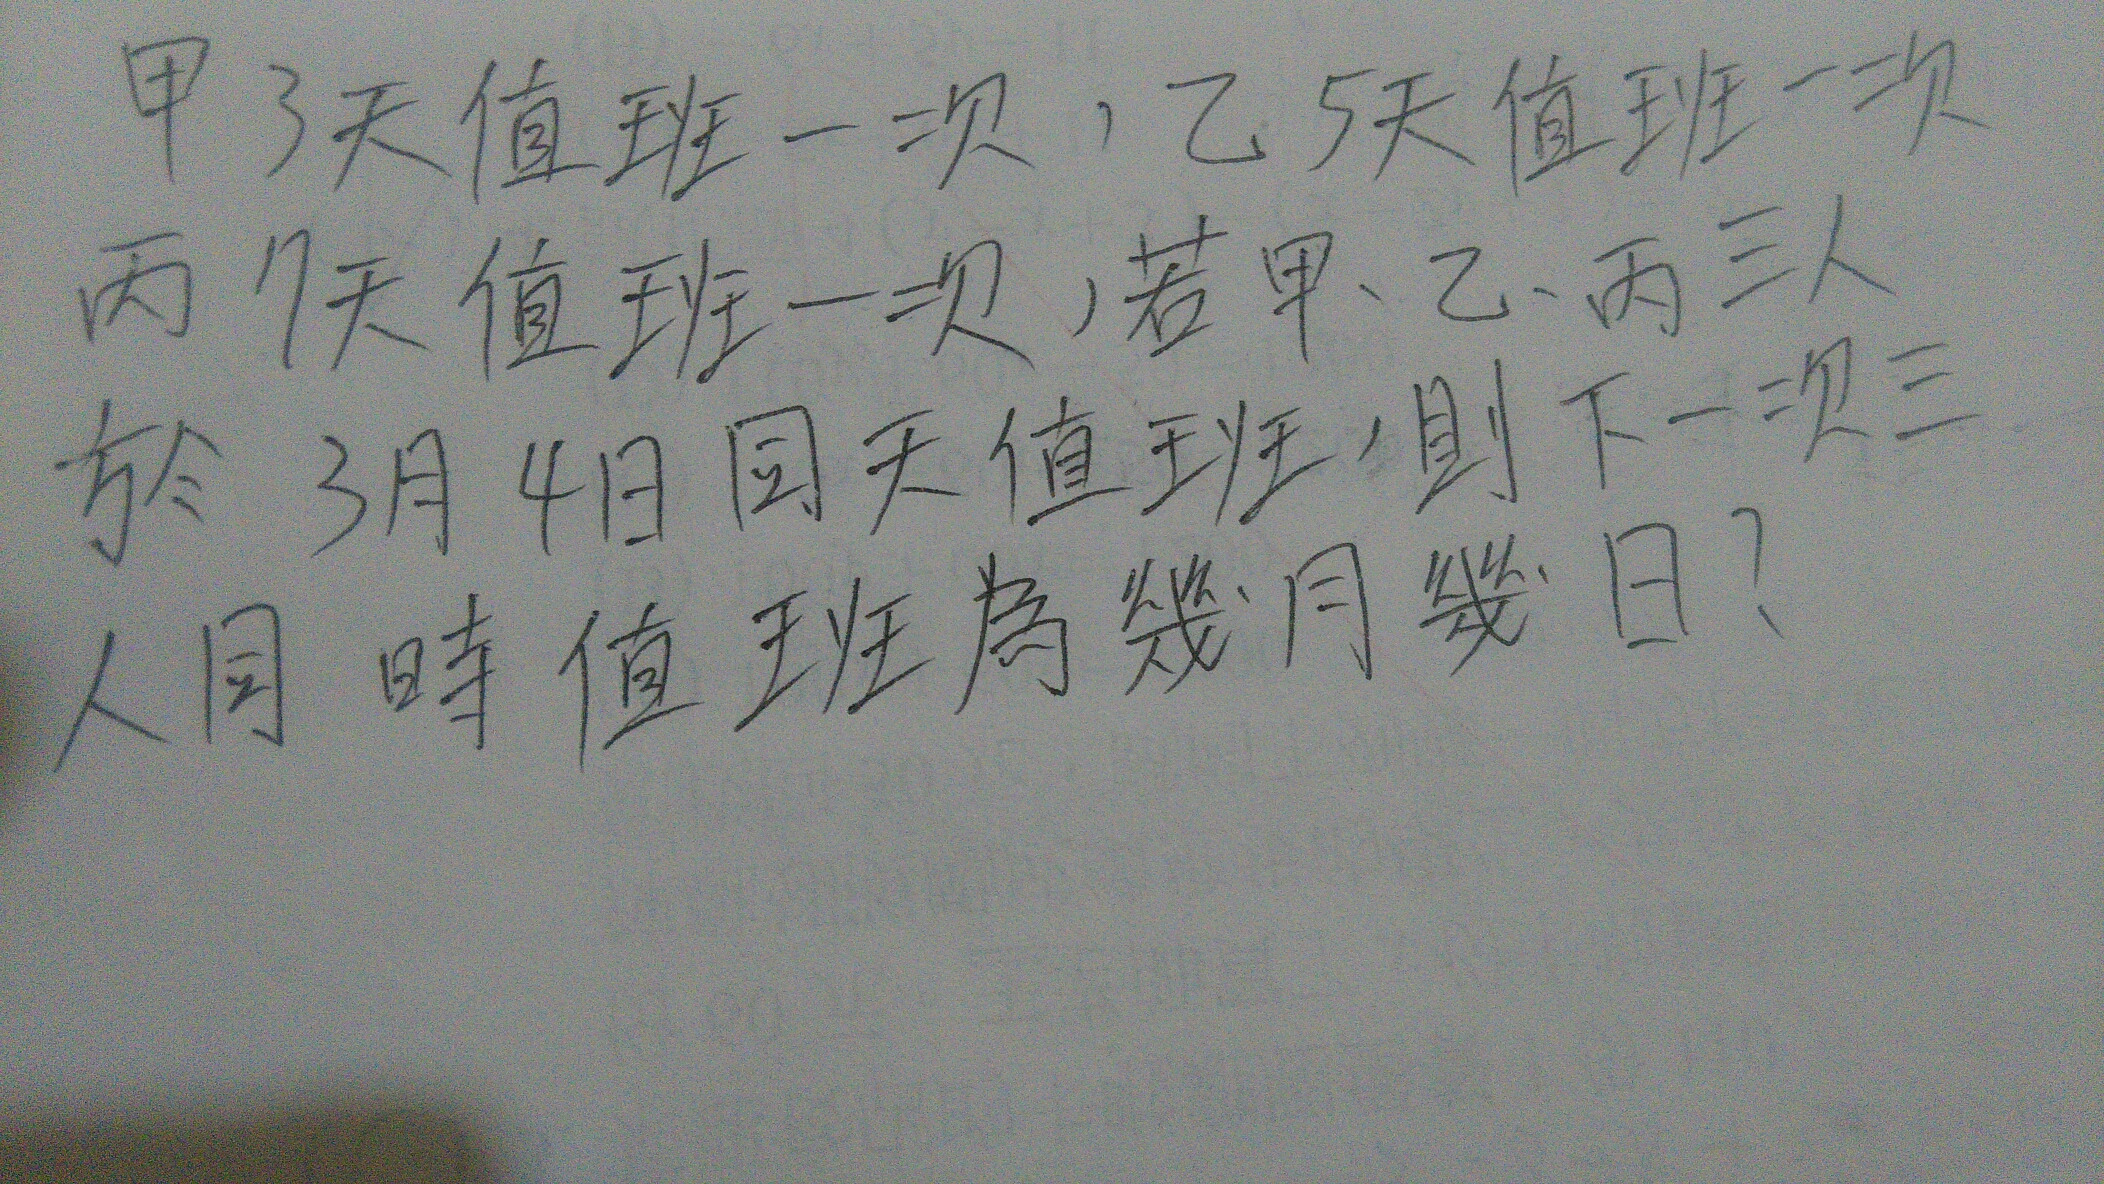 甲3天值班一次，乙5天值班一次
丙7天值班一次，若甲、乙、丙三人
於3月4日同天值班，則下一次三
人同時值班為幾月幾日？